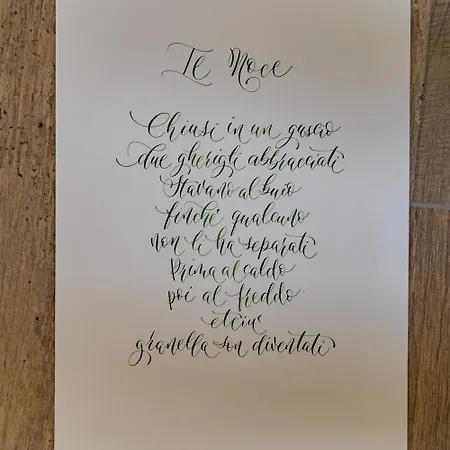 Le Noce
Chiusi in un guscio
due gherigli abbracciati
Stavano al buio
finché qualcuno
non li ha separati
Prima al caldo
poi al freddo
etciu'
granella son diventati